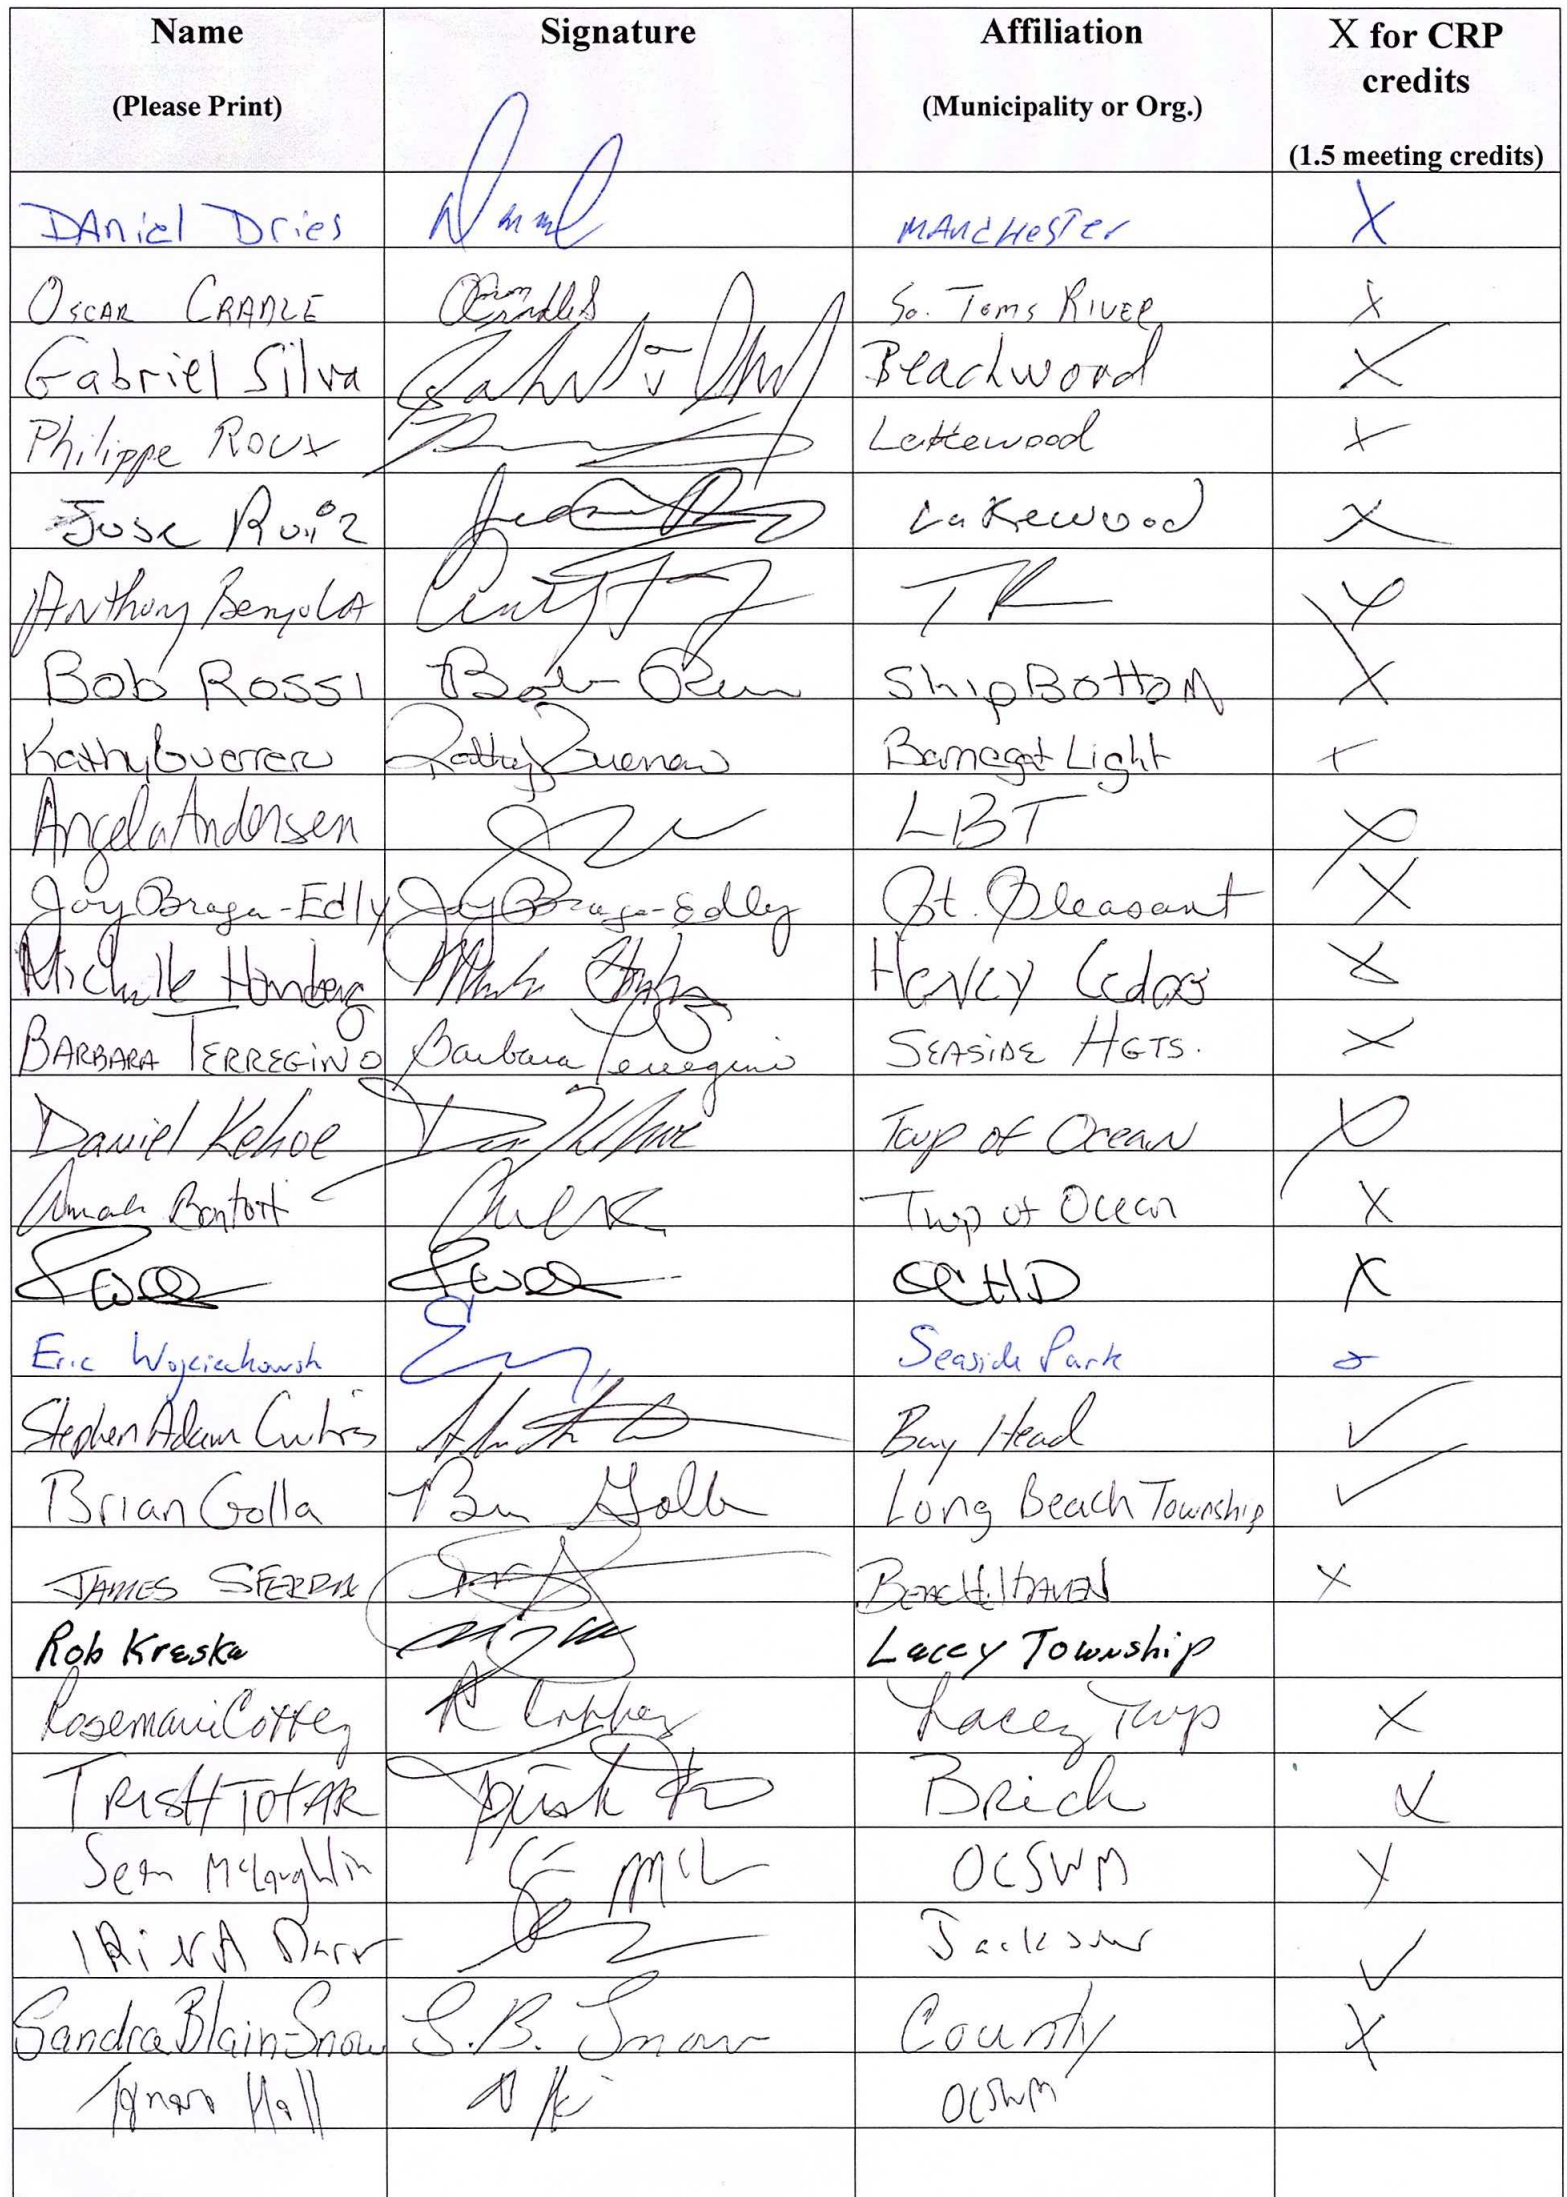 Name Signature Affiliation X for CRP
credits
(Please Print) (Municipality or Org.)
(1.5 meeting credits)
DAniel Dries MANCHesTer X
OSCAR CRADLE So. Toms RIVER X
Gabriel Silva Beachwood X
Philippe Roux Lakewood X
Jose Ruiz Lakewood X
Anthony TR X
Bob ROSSI Bob Ship BOttOM X
Kathy Guerrero Kathy Guerrero Barnegat Light X
Angela Andersen LBT X
Joy Braga-Edly Joy Braga-Edly Pt. Pleasant X
Michelle Harvey Cedars X
BARBARA TERREGINO Barbara Terregino SEASIDE HGTS. X
Daniel Kehoe Twp of Ocean X
Twp of Ocean X
OCHD X
Eric Seaside Park
Stephen Adam Curtis Bay Head ✓
Brian Golla Golla Long Beach Township ✓
JAMES BEACH HAVEN X
Rob Kreska Lacey Township
Rosemarie Lacey Twp X
TRISH TOTAR Trish Brick X
Sean McLaughlin McL OCSWM X
IRINA Jackson ✓
Sandra Blain-Snow S.B. Snow County X
Hall OCSWM